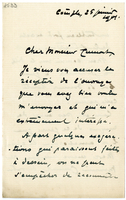 Cher Monsieur
Je viens vous accuser
réception de l'ouvrage
que vous avez bien voulu
m'envoyer et qui m'a
vivement intéressé.
A part quelques exagéra-
tions qui paraissent faites
à dessein, on ne peut
s'empêcher de reconnaître